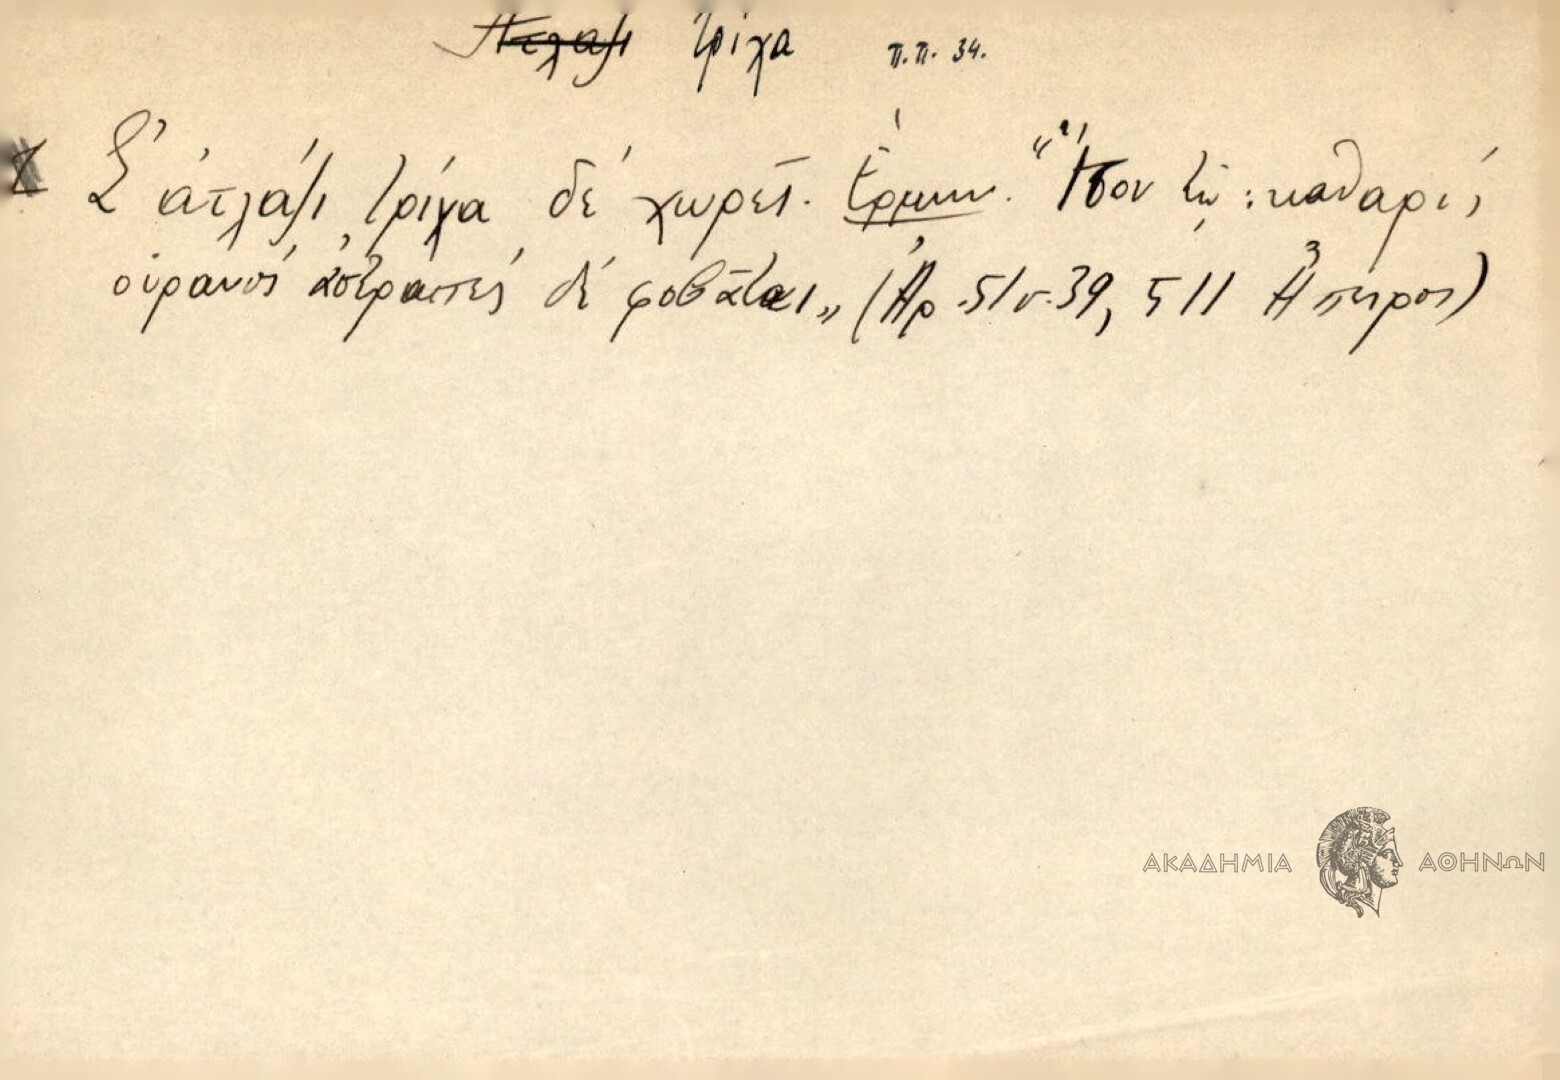 τρίχα π.π. 34.
Σ' ἀτλάζι τρίχα δέ χωρεῖ. Ἑρμην. "Ἴσον τῷ: καθαρὸς
οὐρανός ἀστραπές δέ φοβᾶται" (Ἀρ. 5/ν. 39, 511 Ἤπειρος)
ΑΚΑΔΗΜΙΑ ΑΘΗΝΩΝ